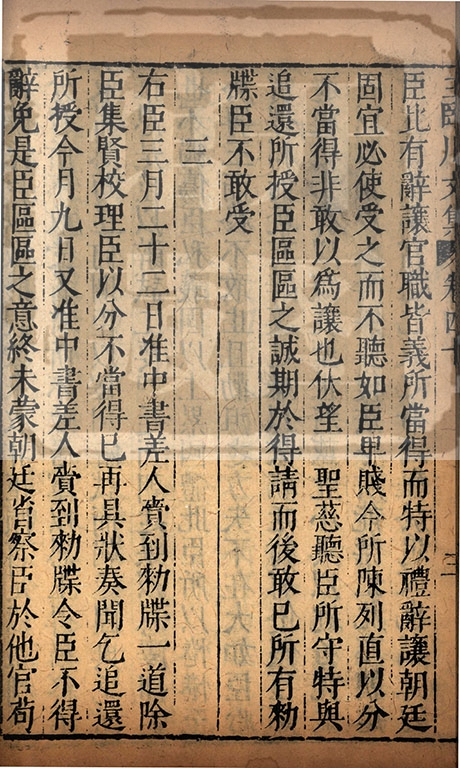 臣比有辭讓官職皆義所當得而特以禮辭讓朝廷
固宜必使受之而不聽如臣卑賤今所陳列直以分
不當得非敢以為讓也伏望　聖慈聽臣所守特與
追還所授臣區區之誠期於得請而後敢已所有勑
牒臣不敢受
三
右臣三月二十二日准中書差人賫到勑牒一道除
臣集賢校理臣以分不當得已再具狀奏聞乞追還
所授今月九日又准中書差人賫到勑牒令臣不得
辭免是臣區區之意終未蒙朝廷省察臣於他官苟